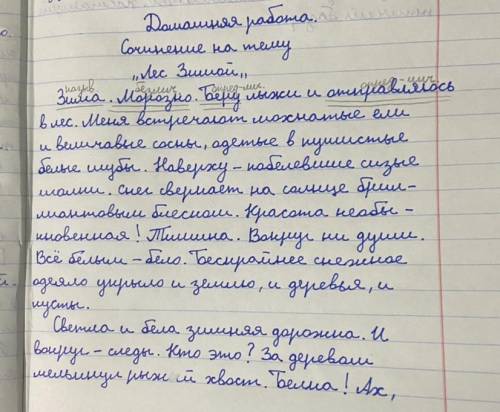 Домашняя работа.
Сочинение на тему
„Лес Зимой„
назыв безлич опред-лич. опред-лич
Зима. Морозно. Беру лыжи и отправляюсь
в лес. Меня встречают мохнатые ели
и величавые сосны, одетые в пушистые
белые шубы. Наверху - побелевшие сизые
шапки. Снег сверкает на солнце брил-
лиантовым блеском. Красота необы-
кновенная! Тишина. Вокруг ни души.
Всё белым - бело. Бескрайнее снежное
одеяло укрыло и землю, и деревья, и
кусты.
Светла и бела зимняя дорожка. И
вокруг - следы. Кто это? За деревом
мелькнул рыжий хвост. Белка! Ах,